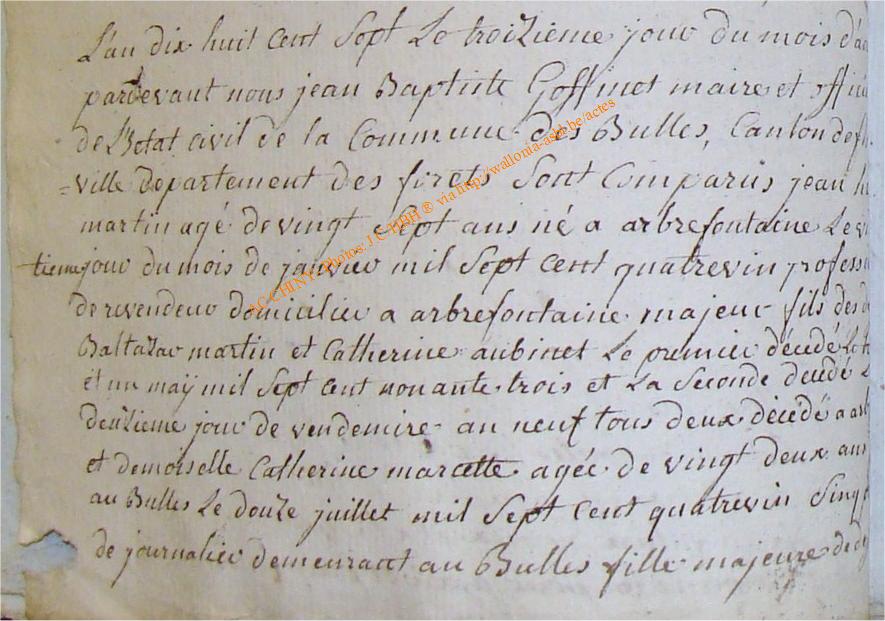 L'an dix huit cent Sept Le troizieme jour du mois d'a
pardevant nous jean Baptiste Goffinet maire et offi
de L'Etat civil de la Commune des Bulles, Canton de f
=ville Departement des forets Sont Comparus jean
martin agé de vingt Sept ans né a arbrefontaine Le v
tieme jour du mois de janvier mil Sept Cent quatrevin profess
de revendeur domicilier a arbrefontaine majeur fils des
Baltazar martin et Catherine aubinet Le premier décédé Le
et un maÿ mil Sept Cent nonante trois et La Seconde décédé
deuzieme jour de vendemire an neuf tous deux décédé a arb
et demoiselle Catherine marcette agée de vingt deux ans
au Bulles Le douze juillet mil Sept Cent quatrevin Sinq
de journalier demeurant au Bulles fille majeure de
AC CHINY Photos: J.C. HBH ® via http://wallonia-asbl.be/actes